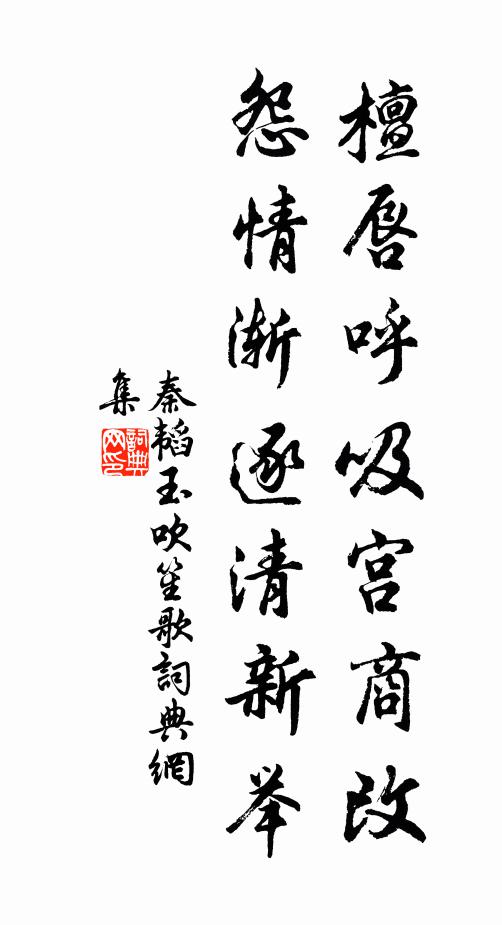 檀唇呼吸宫商改
怨情渐逐清新举
秦韬玉吹笙歌詞典網
集
詞典
网印